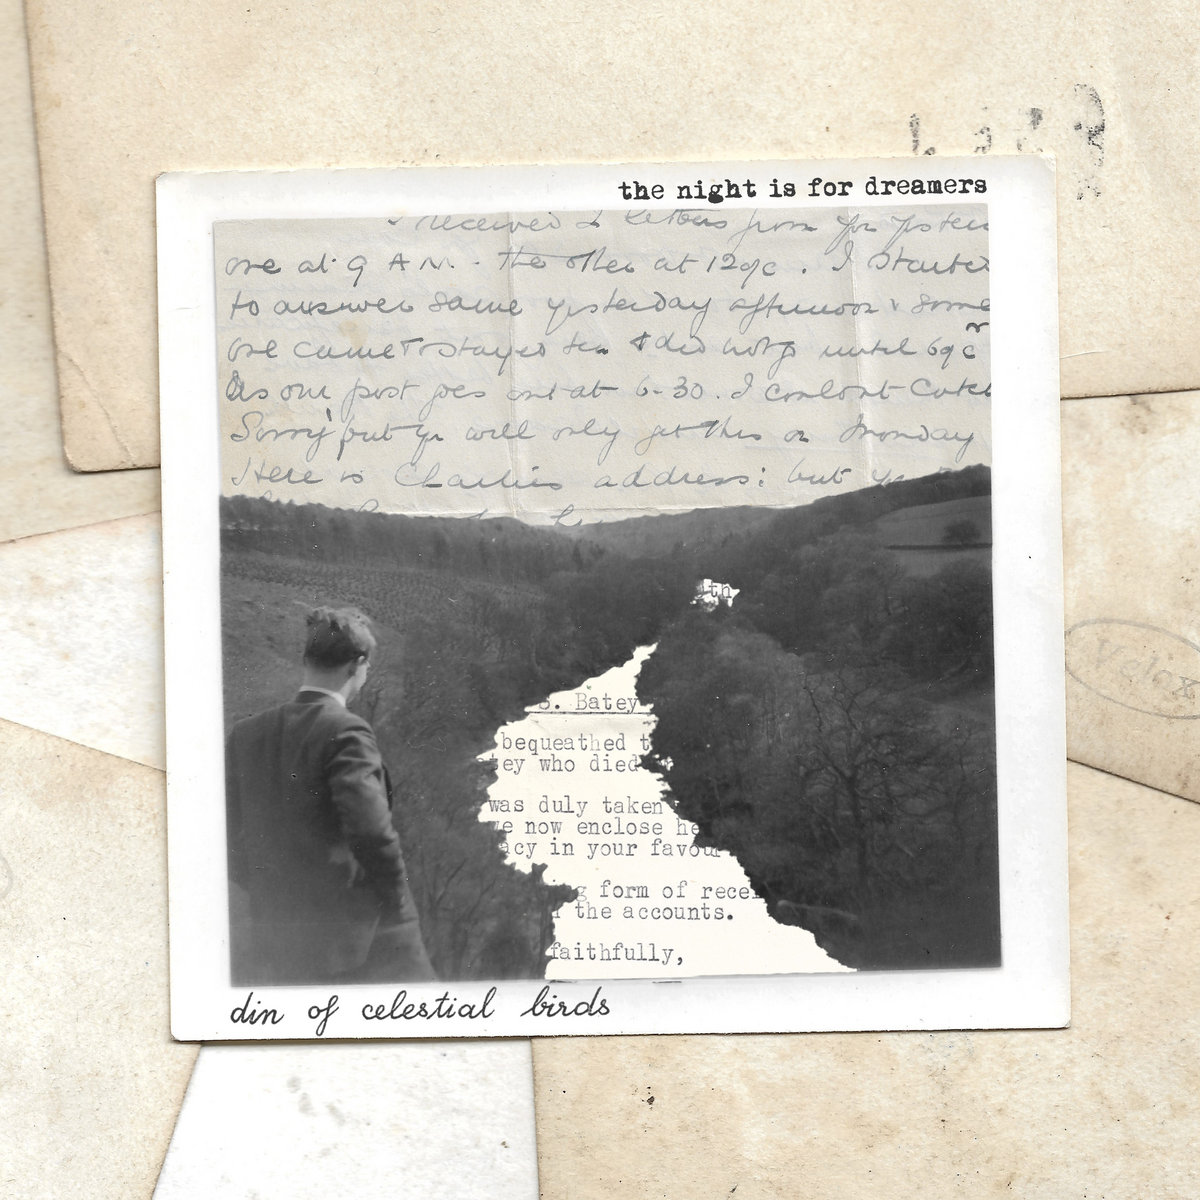 the night is for dreamers
received 2 letters from you
one at 9 A.M. the other at 12
I started
to answer same yesterday afternoon & some
one came & stayed tea & did not go until 6
As our post goes out at 6-30. I couldn't catch
Sorry but yr will only get this on Monday
Here is Charlies address: but
th
S. Batey
bequeathed t
tey who died
was duly taken
e now enclose he
acy in your favour
g form of recei
the accounts.
faithfully,
din of celestial birds
Velox